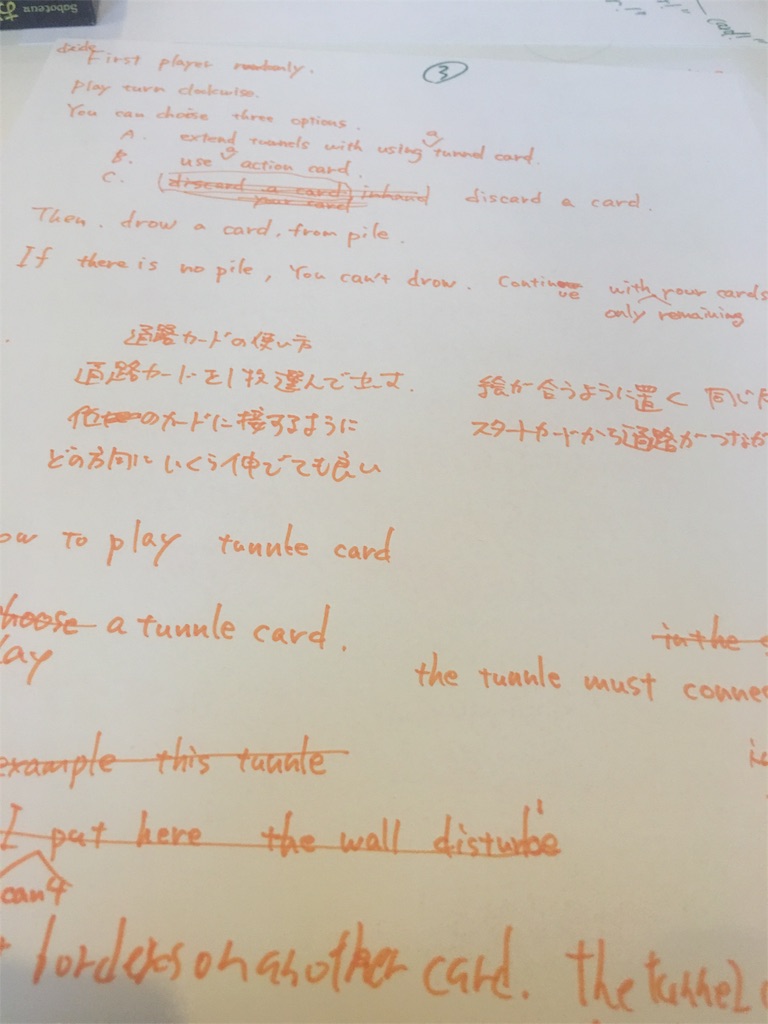 Saboteur
card!!
③
decide First player randomly.
Play turn clockwise.
You can choose three options.
A. extend tunnels with using a tunnel card.
B. use a action card.
C. discard a card inhand discard a card.
your card
Then, drow a card. from pile.
If there is no pile, You can't drow. Continue with your cards
only remaining
通路カードの使い方
通路カードを1枚選んで出す.
絵が合うように置く 同じ
他のカードに接するように
スタートカードから通路がつなが
どの方向にいくら伸びても良い
ow to play tunnle card
choose a tunnle card.
lay
in the
the tunnle must conne
example this tunnle
I put here the wall disturbe
can't
borders on another card. the tunnel